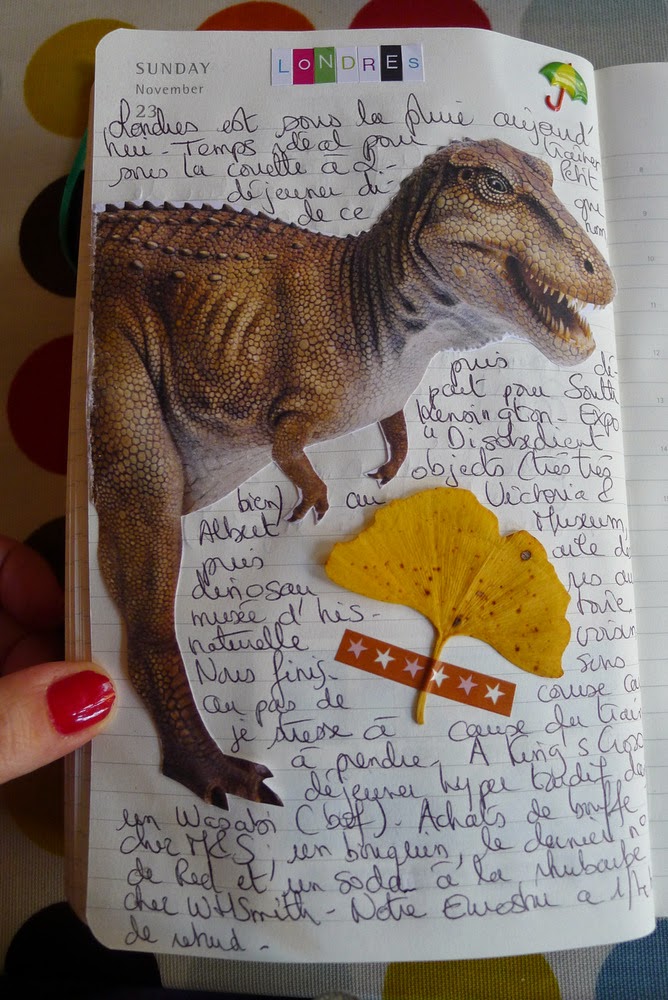 SUNDAY
November
23
LONDRES
Londres est sous la pluie aujourd'
hui - Temps idéal pour traîner
sous la couette à Petit
déjeuner di- que
de ce nom
puis dé-
part pour South
Kensington - Expo
"Disobedient
objects (très très
bien) au Victoria &
Albert Museum,
puis aile de
dinosau res au
musée d'his- toire
naturelle voisin
Nous finis- sons
au pas de course ca
je stresse à cause du train
à prendre. A King's Cross
déjeuner hyper tardif da
un Wasabi (bof). Achats de bouffe
chez M&S, un bouquin, le dernier no
de Red et un soda à la rhubarbe
chez WHSmith - Notre Eurostar a 1/4h
de retard -